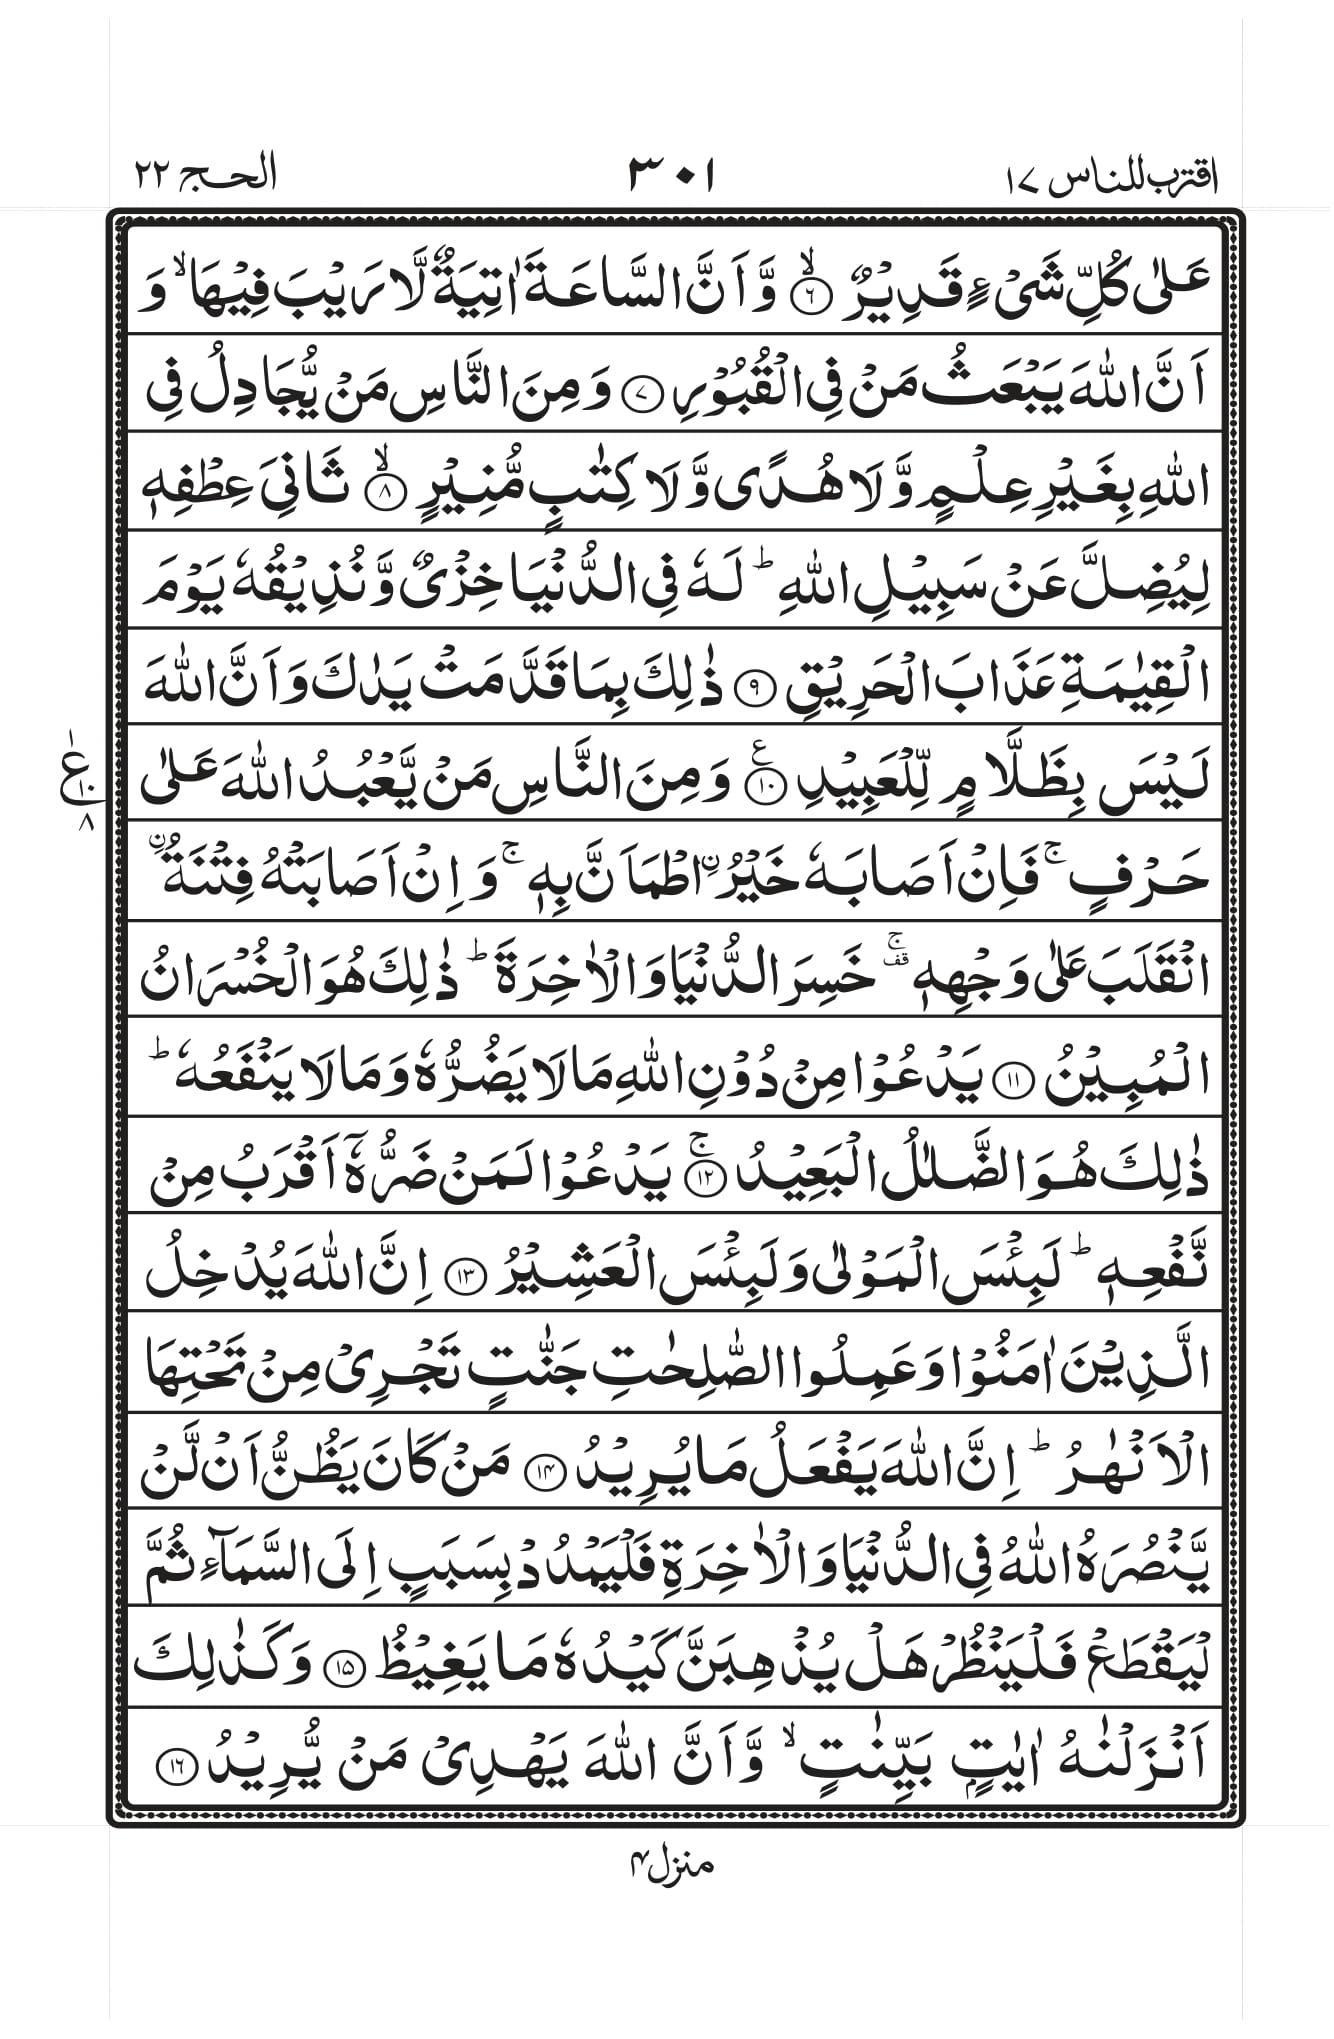 اقترب للناس ١٧
٣٠١
الحج ٢٢
عَلٰى كُلِّ شَىْءٍ قَدِيْرٌ ۙ‏﴿٦﴾ وَّاَنَّ السَّاعَةَ اٰتِيَةٌ لَّا رَيْبَ فِيْهَا ۙ وَ
اَنَّ اللّٰهَ يَبْعَثُ مَنْ فِى الْقُبُوْرِ ﴿٧﴾ وَمِنَ النَّاسِ مَنْ يُّجَادِلُ فِى
اللّٰهِ بِغَيْرِ عِلْمٍ وَّلَا هُدًى وَّلَا كِتٰبٍ مُّنِيْرٍ ۙ‏﴿٨﴾ ثَانِىَ عِطْفِهٖ
لِيُضِلَّ عَنْ سَبِيْلِ اللّٰهِ ؕ لَهٗ فِى الدُّنْيَا خِزْىٌ وَّنُذِيْقُهٗ يَوْمَ
الْقِيٰمَةِ عَذَابَ الْحَرِيْقِ ﴿٩﴾ ذٰلِكَ بِمَا قَدَّمَتْ يَدٰكَ وَاَنَّ اللّٰهَ
لَيْسَ بِظَلَّامٍ لِّلْعَبِيْدِ ﴿١٠﴾ ع وَمِنَ النَّاسِ مَنْ يَّعْبُدُ اللّٰهَ عَلٰى
ع ١ ١٠ ٨
حَرْفٍ ۚ فَاِنْ اَصَابَهٗ خَيْرُ ۨاطْمَاَنَّ بِهٖ ۚ وَاِنْ اَصَابَتْهُ فِتْنَةُ ۨ
انْقَلَبَ عَلٰى وَجْهِهٖ ۚقف خَسِرَ الدُّنْيَا وَالْاٰخِرَةَ ؕ ذٰلِكَ هُوَ الْخُسْرَانُ
الْمُبِيْنُ ﴿١١﴾ يَدْعُوْا مِنْ دُوْنِ اللّٰهِ مَا لَا يَضُرُّهٗ وَمَا لَا يَنْفَعُهٗ ؕ
ذٰلِكَ هُوَ الضَّلٰلُ الْبَعِيْدُ ۚ‏﴿١٢﴾ يَدْعُوْا لَمَنْ ضَرُّهٗۤ اَقْرَبُ مِنْ
نَّفْعِهٖ ؕ لَبِئْسَ الْمَوْلٰى وَلَبِئْسَ الْعَشِيْرُ ﴿١٣﴾ اِنَّ اللّٰهَ يُدْخِلُ
الَّذِيْنَ اٰمَنُوْا وَعَمِلُوا الصّٰلِحٰتِ جَنّٰتٍ تَجْرِىْ مِنْ تَحْتِهَا
الْاَنْهٰرُ ؕ اِنَّ اللّٰهَ يَفْعَلُ مَا يُرِيْدُ ﴿١٤﴾ مَنْ كَانَ يَظُنُّ اَنْ لَّنْ
يَّنْصُرَهُ اللّٰهُ فِى الدُّنْيَا وَالْاٰخِرَةِ فَلْيَمْدُدْ بِسَبَبٍ اِلَى السَّمَآءِ ثُمَّ
لْيَقْطَعْ فَلْيَنْظُرْ هَلْ يُذْهِبَنَّ كَيْدُهٗ مَا يَغِيْظُ ﴿١٥﴾ وَكَذٰلِكَ
اَنْزَلْنٰهُ اٰيٰتٍۢ بَيِّنٰتٍ ۙ وَّاَنَّ اللّٰهَ يَهْدِىْ مَنْ يُّرِيْدُ ﴿١٦﴾
منزل ٤